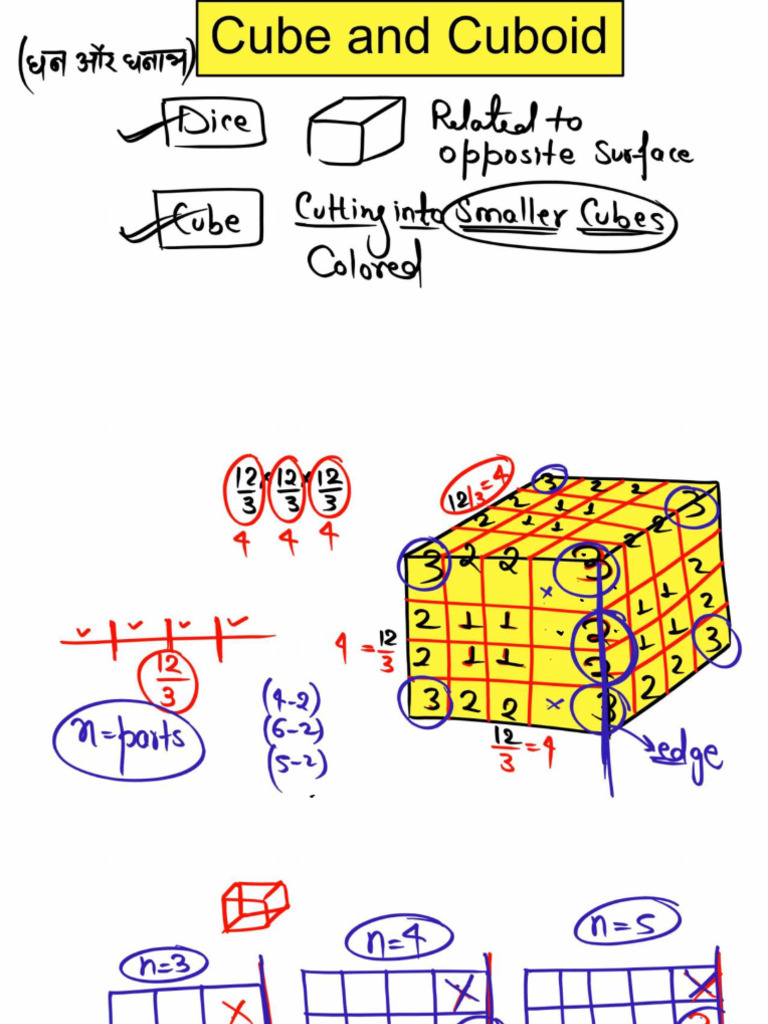 Cube and Cuboid
(घन और घनाभ)
Dice
Related to
opposite Surface
Cube
Cutting into Smaller Cubes
Colored
12/3 12/3 12/3
4 4 4
12/3=4
3 2 2
2 1 1 2 3
2 1 1 2
3 2 2 3
x 1 2
2 1 1 2 1 2
4 = 12/3
2 1 1 2 1 3
3 2 2 x 3 2 2
12/3 = 4
edge
12/3
n=parts
(4-2)
(6-2)
(5-2)
n=3
n=4
n=5
x
x
x